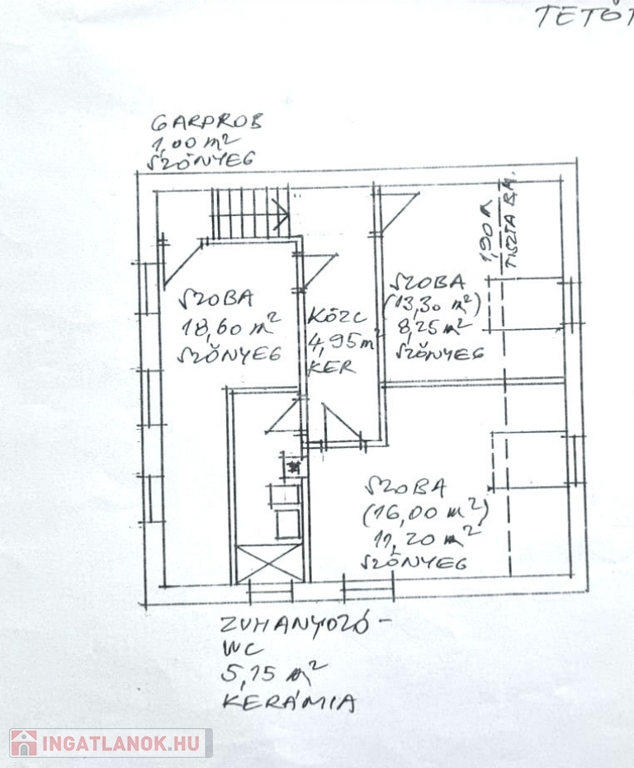 TETŐT
GARPROB
1,00 m²
SZŐNYEG
1,90 m
TISZTA B.M.
SZOBA
18,60 m²
SZŐNYEG
KÖZL
4,95 m²
KER
SZOBA
(13,30 m²)
8,25 m²
SZŐNYEG
SZOBA
(16,00 m²)
11,20 m²
SZŐNYEG
ZUHANYOZÓ-
WC
5,15 m²
KERÁMIA
INGATLANOK.HU